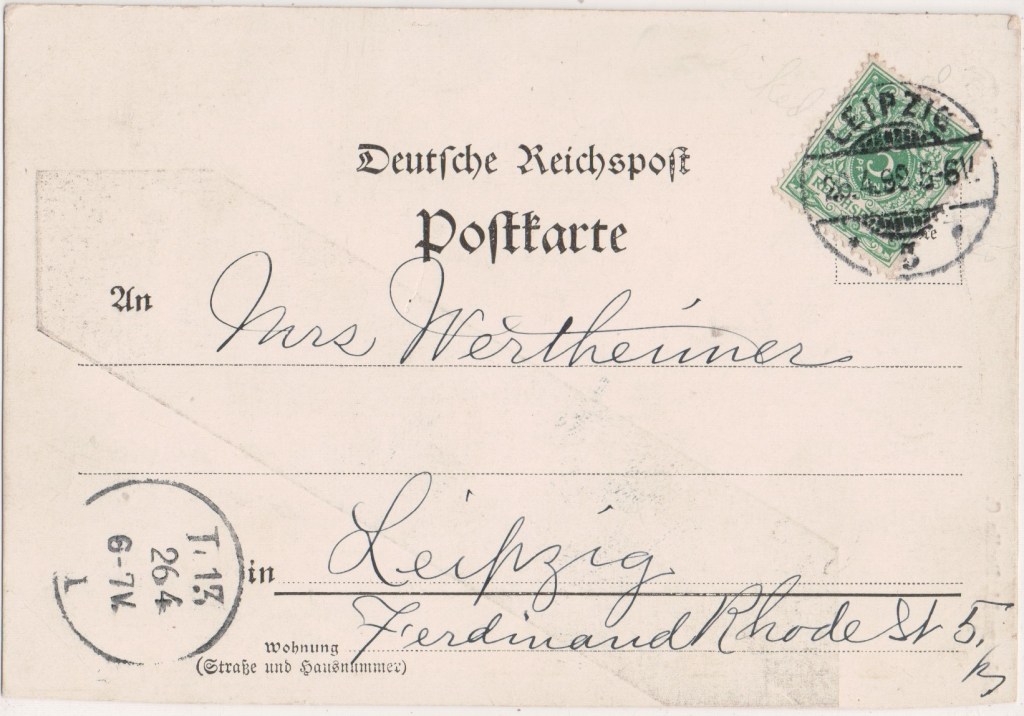 Deutsche Reichspost
Postkarte
LEIPZIG
5-6N.
3
An Mrs Wertheimer
in Leipzig
Wohnung
(Straße und Hausnummer)
Ferdinand Rhode St 5.
T. 13
26 4
6-7N.
1